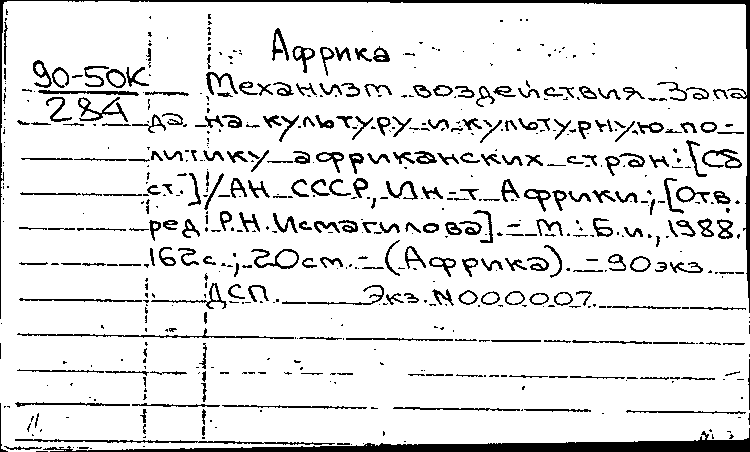 Африка
90-50К
284
Механизм воздействия Запа
да на культуру и культурную по-
литику африканских стран: [Сб
ст.] / АН СССР, Ин-т Африки; [Отв.
ред. Р.Н. Исмагилова]. - М.: Б.и., 1988.
162 с.; 20 см. - (Африка). - 90 экз.
ДСП. Экз. N 000007.